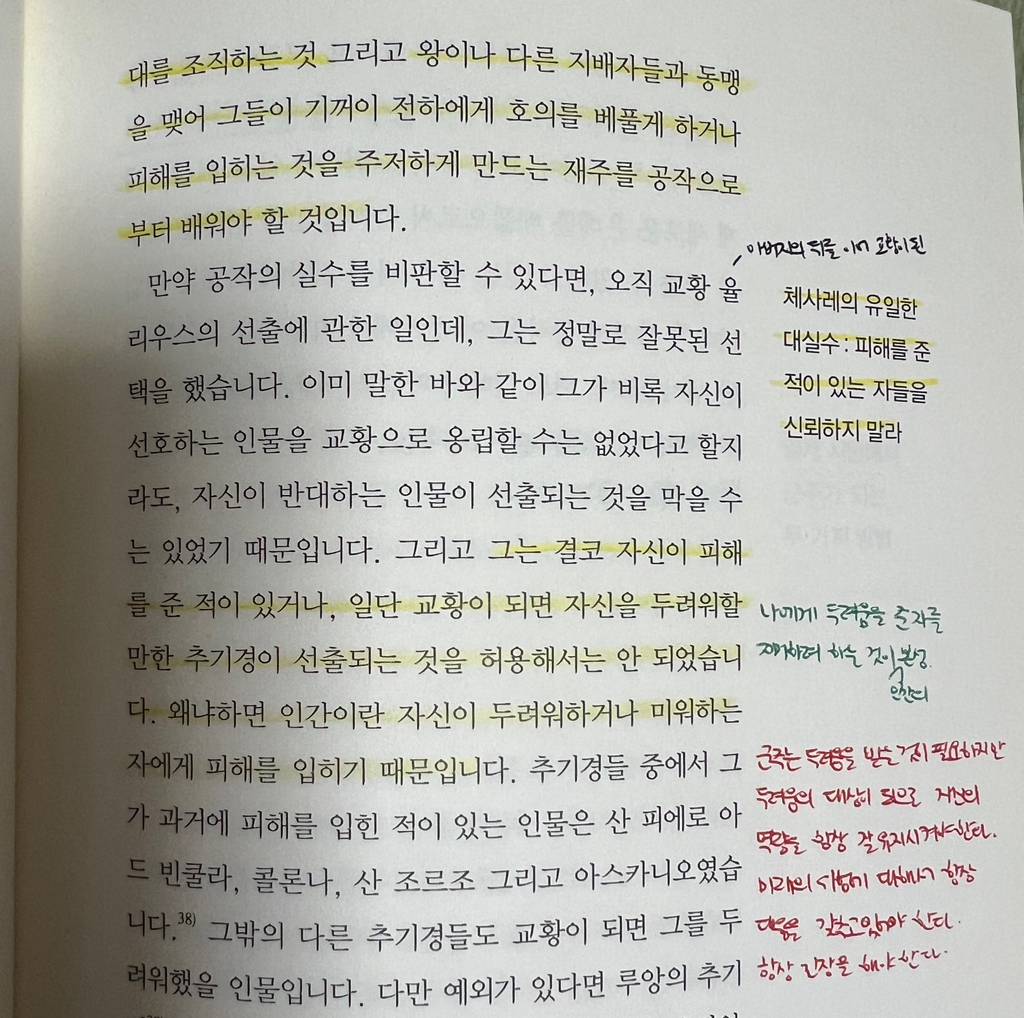 대를 조직하는 것 그리고 왕이나 다른 지배자들과 동맹
을 맺어 그들이 기꺼이 전하에게 호의를 베풀게 하거나
피해를 입히는 것을 주저하게 만드는 재주를 공작으로
부터 배워야 할 것입니다.
만약 공작의 실수를 비판할 수 있다면, 오직 교황 율
리우스의 선출에 관한 일인데, 그는 정말로 잘못된 선
택을 했습니다. 이미 말한 바와 같이 그가 비록 자신이
선호하는 인물을 교황으로 옹립할 수는 없었다고 할지
라도, 자신이 반대하는 인물이 선출되는 것을 막을 수
는 있었기 때문입니다. 그리고 그는 결코 자신이 피해
를 준 적이 있거나, 일단 교황이 되면 자신을 두려워할
만한 추기경이 선출되는 것을 허용해서는 안 되었습니
다. 왜냐하면 인간이란 자신이 두려워하거나 미워하는
자에게 피해를 입히기 때문입니다. 추기경들 중에서 그
가 과거에 피해를 입힌 적이 있는 인물은 산 피에로 아
드 빈쿨라, 콜론나, 산 조르조 그리고 아스카니오였습
니다.38) 그밖의 다른 추기경들도 교황이 되면 그를 두
려워했을 인물입니다. 다만 예외가 있다면 루앙의 추기
아버지의 뒤를 이어 교황이 된
체사레의 유일한
대실수 : 피해를 준
적이 있는 자들을
신뢰하지 말라
나에게 두려움을 준 자를
제거하려 하는 것이 본성.
인간의
군주는 두려움을 받는 것이 필요하지만
두려움의 대상이 되므로 자신의
역량을 항상 잘 유지시켜야한다.
미래의 시험에 대해서 항상
대응을 갖추고있어야 한다.
항상 긴장을 해야 한다.